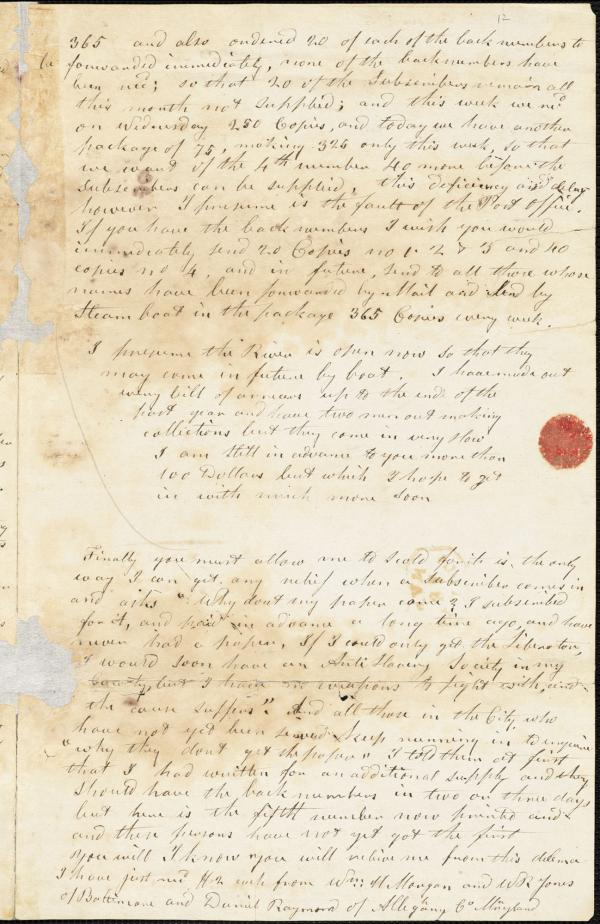 12
365 and also ordered 20 of each of the back numbers to
be forwarded immediately, none of the back numbers have
been recd; so that 20 of the Subscribers remain all
this month not supplied; and this week we recd
on Wednesday 250 Copies, and today we have another
package of 75, making 325 only this week, so that
we want of the 4th number 40 more before the
Subscribers can be supplied, this deficiency and delay
however I presume is the fault of the Post Office.
If you have the back numbers I wish you would
immediately send 20 Copies no 1. 2 & 3 and 40
copies no 4, and in future, send to all those whose
names have been forwarded by Mail and send by
Steam boat in the package 365 Copies every week.
I presume the River is open now so that they
may come in future by boat. I have made out
every bill of arrears up to the end of the
past year and have two men out making
collections but they come in very slow
I am still in advance to you more than
100 Dollars but which I hope to get
in with much more soon
Finally you must allow me to scold for it is the only
way I can get any relief when a Subscriber comes in
and asks "Why dont my paper come? I subscribed
for it, and paid in advance a long time ago, and have
never had a paper, If I could only get the Liberator,
I would soon have an Anti Slavery Society in my
County, but I have no weapons to fight with, and
the cause suffers". And all those in the City, who
have not yet been served keep running in to enquire
"why they dont get the paper" I told them at first
that I had written for an additional supply and they
should have the back numbers in two or three days
but here is the fifth number now printed and
and these persons have not yet got the first
You will I know you will relieve me from this dilema
I have just recd $2 each from Wm H Morgan and Jones
of Baltimore and Daniel Raymond of Allegany Co Maryland